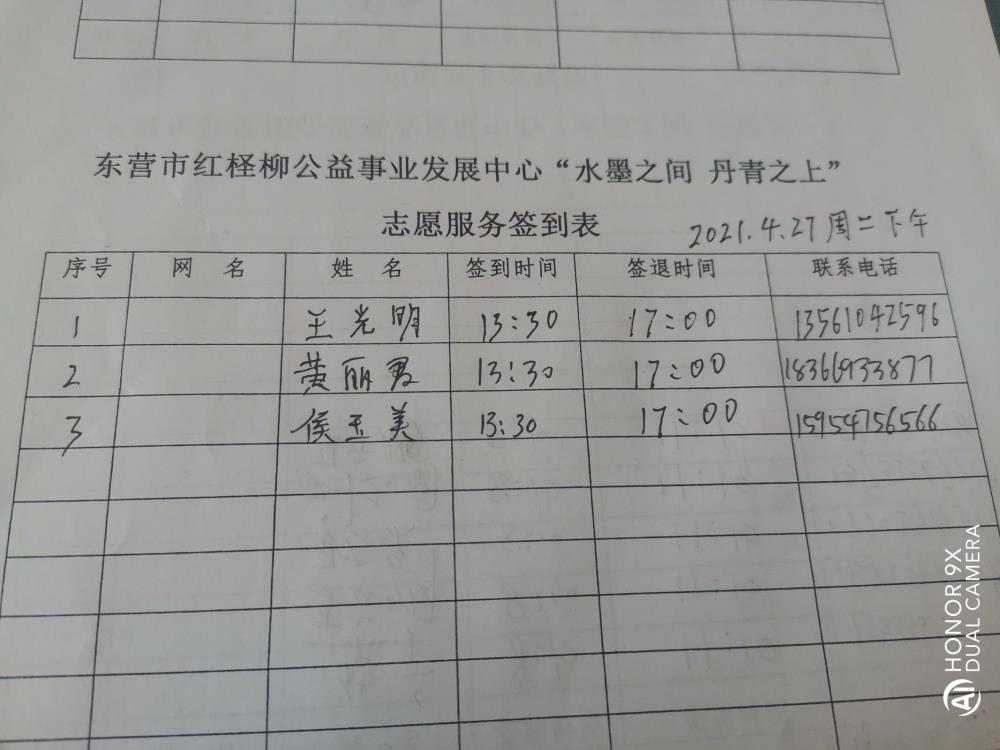 东营市红柽柳公益事业发展中心“水墨之间 丹青之上”
志愿服务签到表 2021.4.27周二下午
序号 网 名 姓 名 签到时间 签退时间 联系电话
1 王光明 13:30 17:00 13561042596
2 黄丽君 13:30 17:00 18366933877
3 侯玉美 13:30 17:00 15954756566
HONOR 9X
AI DUAL CAMERA